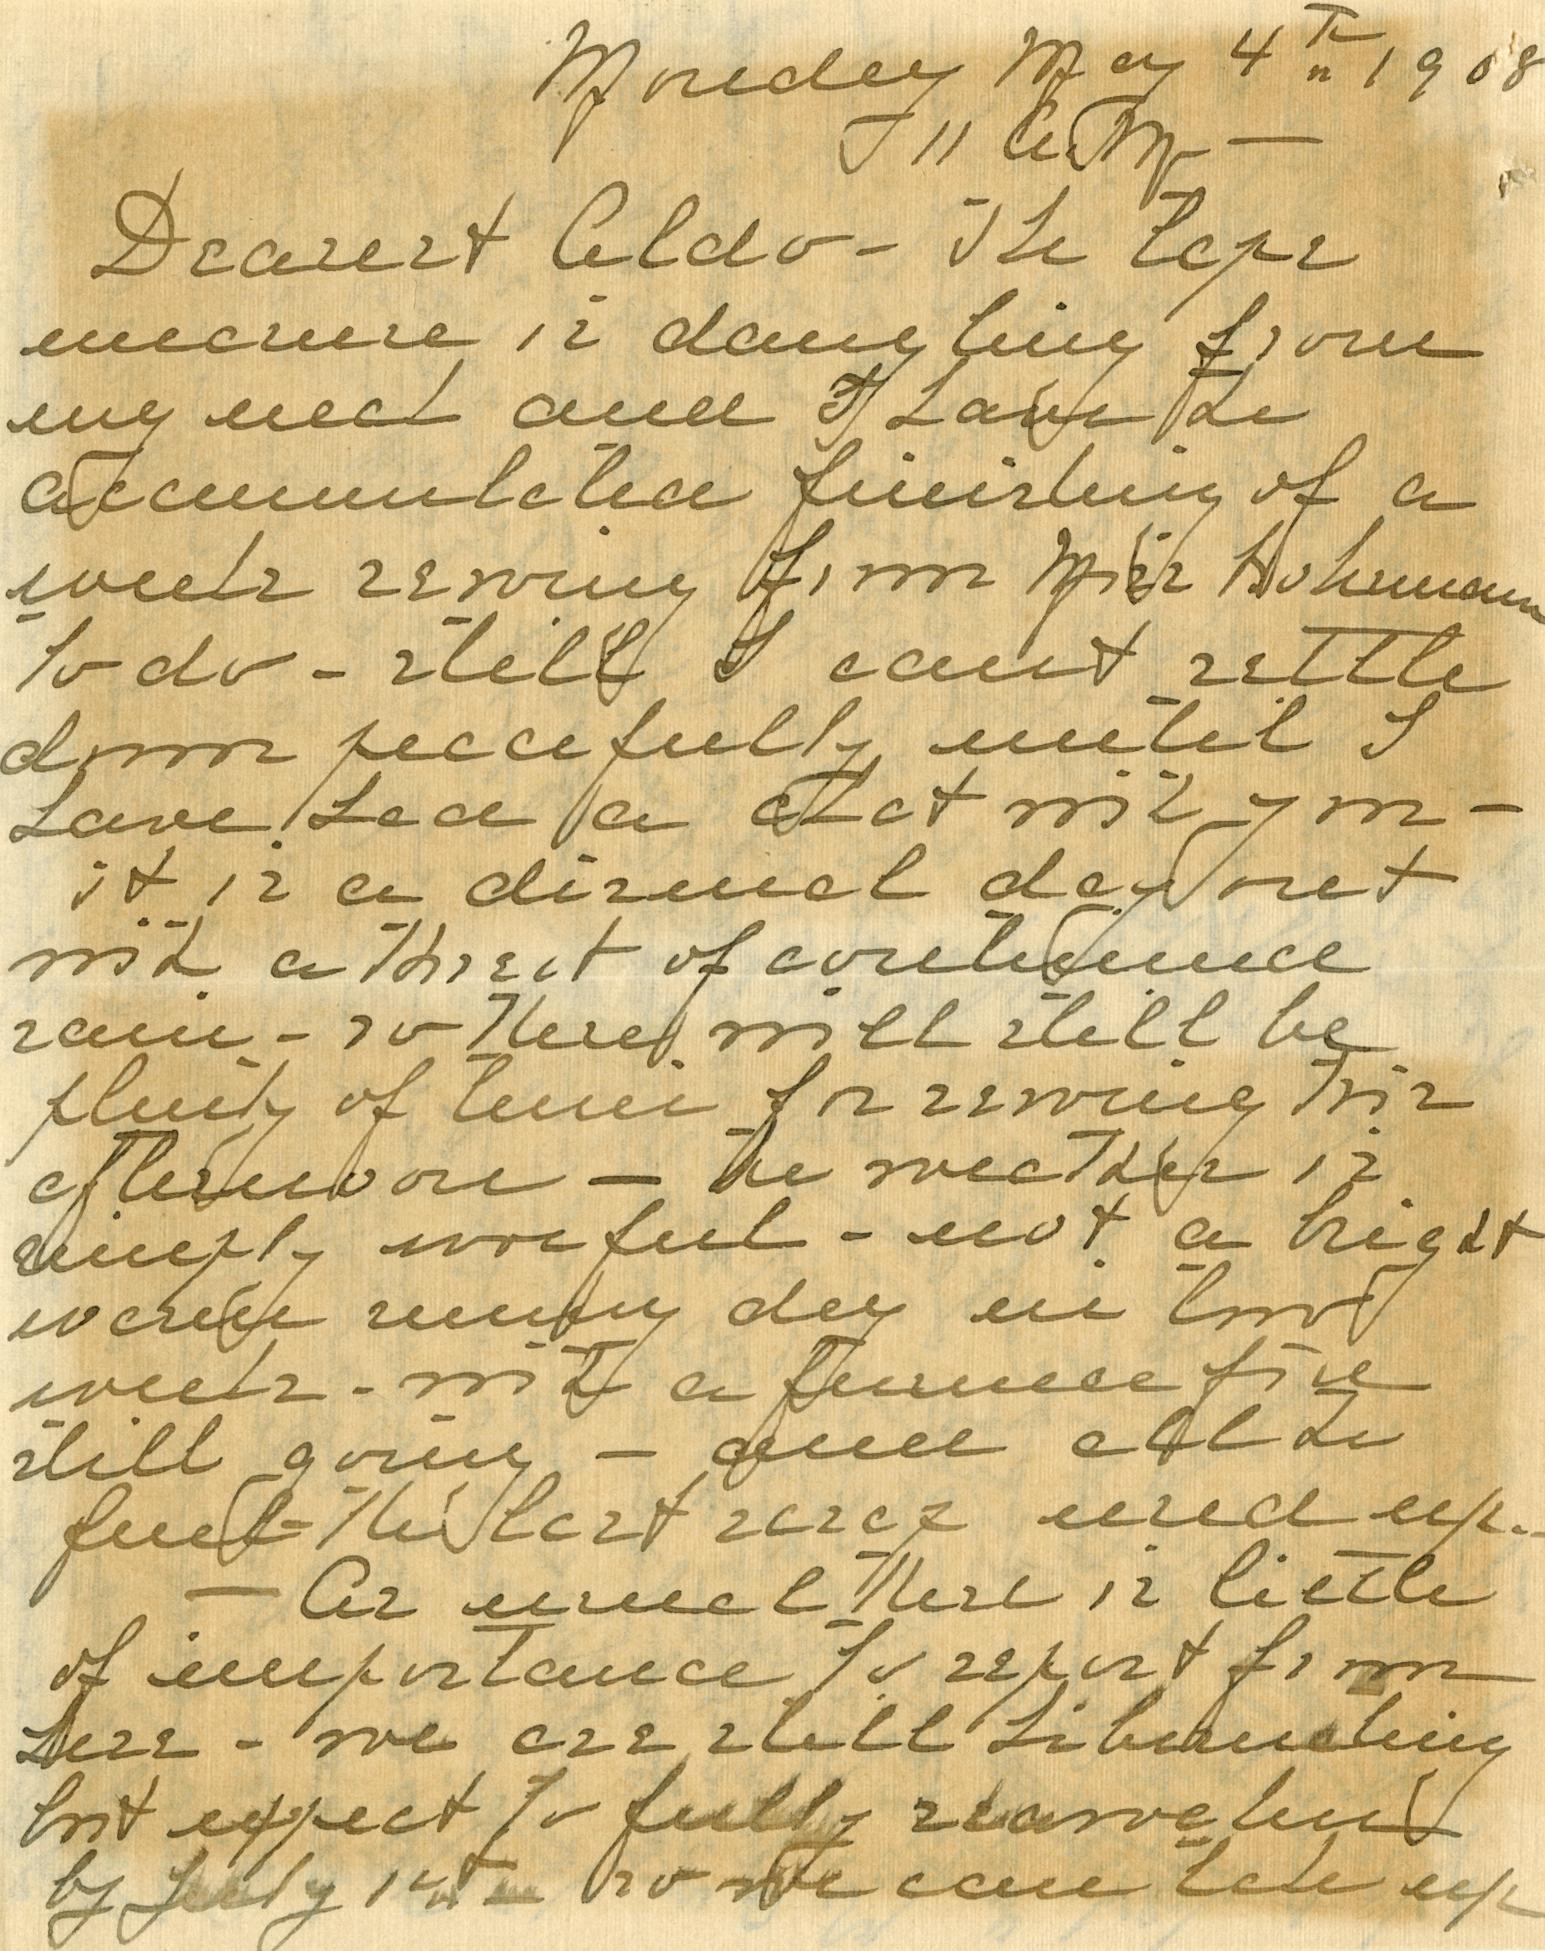 Monday May 4th 1908
11 A.M. —
Dearest Aldo - The tape
measure is dangling from
my neck and I have the
accumulated finishing of a
weeks sewing from Miss Hohmann
to do - still I cant settle
down peacefully until I
have had a chat with you -
it is a dismal day out
with a threat of continued
rain - so there will still be
plenty of time for sewing this
afternoon - the weather is
simply woeful - not a bright
warm sunny day in two
weeks - with a furnace fire
still going - and all the
fuel - the last scrap used up..
- As usual there is little
of importance to report from
here - we are still hibernating
but expect to fully reawaken
by July 1st so we can take up